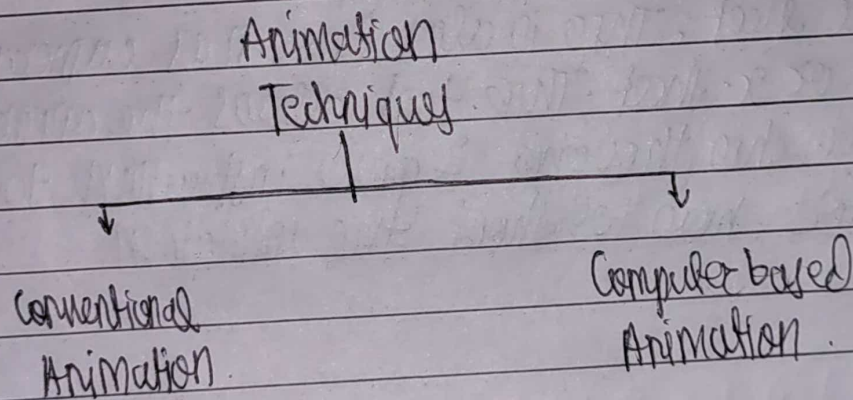 Animation
Techniques
Conventional
Animation.
Computer based
Animation.